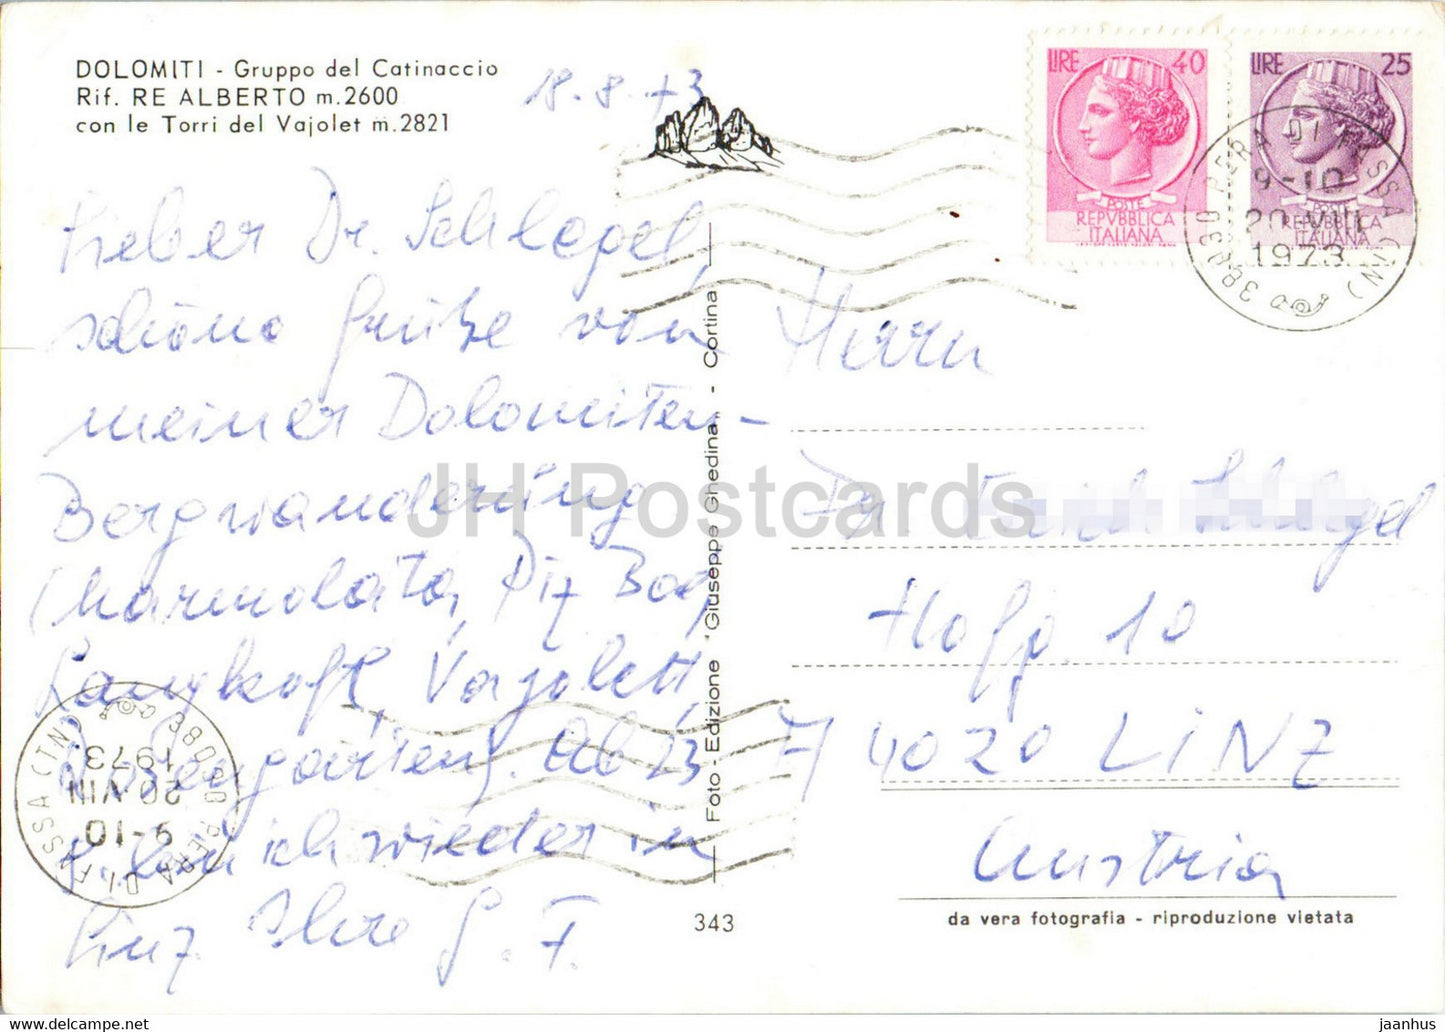 DOLOMITI - Gruppo del Catinaccio
Rif. RE ALBERTO m.2600
con le Torri del Vajolet m.2821
18.8.73
Lieber Dr. Schlegel,
schöne Grüße von
meiner Dolomiten-
Bergwanderung
(Marmolata, Piz Boe,
Langkofl, Vajolett,
Rosengarten). Ab 23
bin ich wieder in
Linz. Ihre G. F.
Foto-Edizione "Giuseppe Ghedina" - Cortina
343
LIRE 40
POSTE
REPVBBLICA
ITALIANA
LIRE 25
POSTE
REPVBBLICA
ITALIANA
38030 PERA DI FASSA (TN)
9-10
20 VIII
1973
Herrn
Dr.
Hofg. 10
A 4020 LINZ
Austria
da vera fotografia - riproduzione vietata
38030 PERA DI FASSA (TN)
9-10
20 VIII
1973
JH Postcards
jaanhus